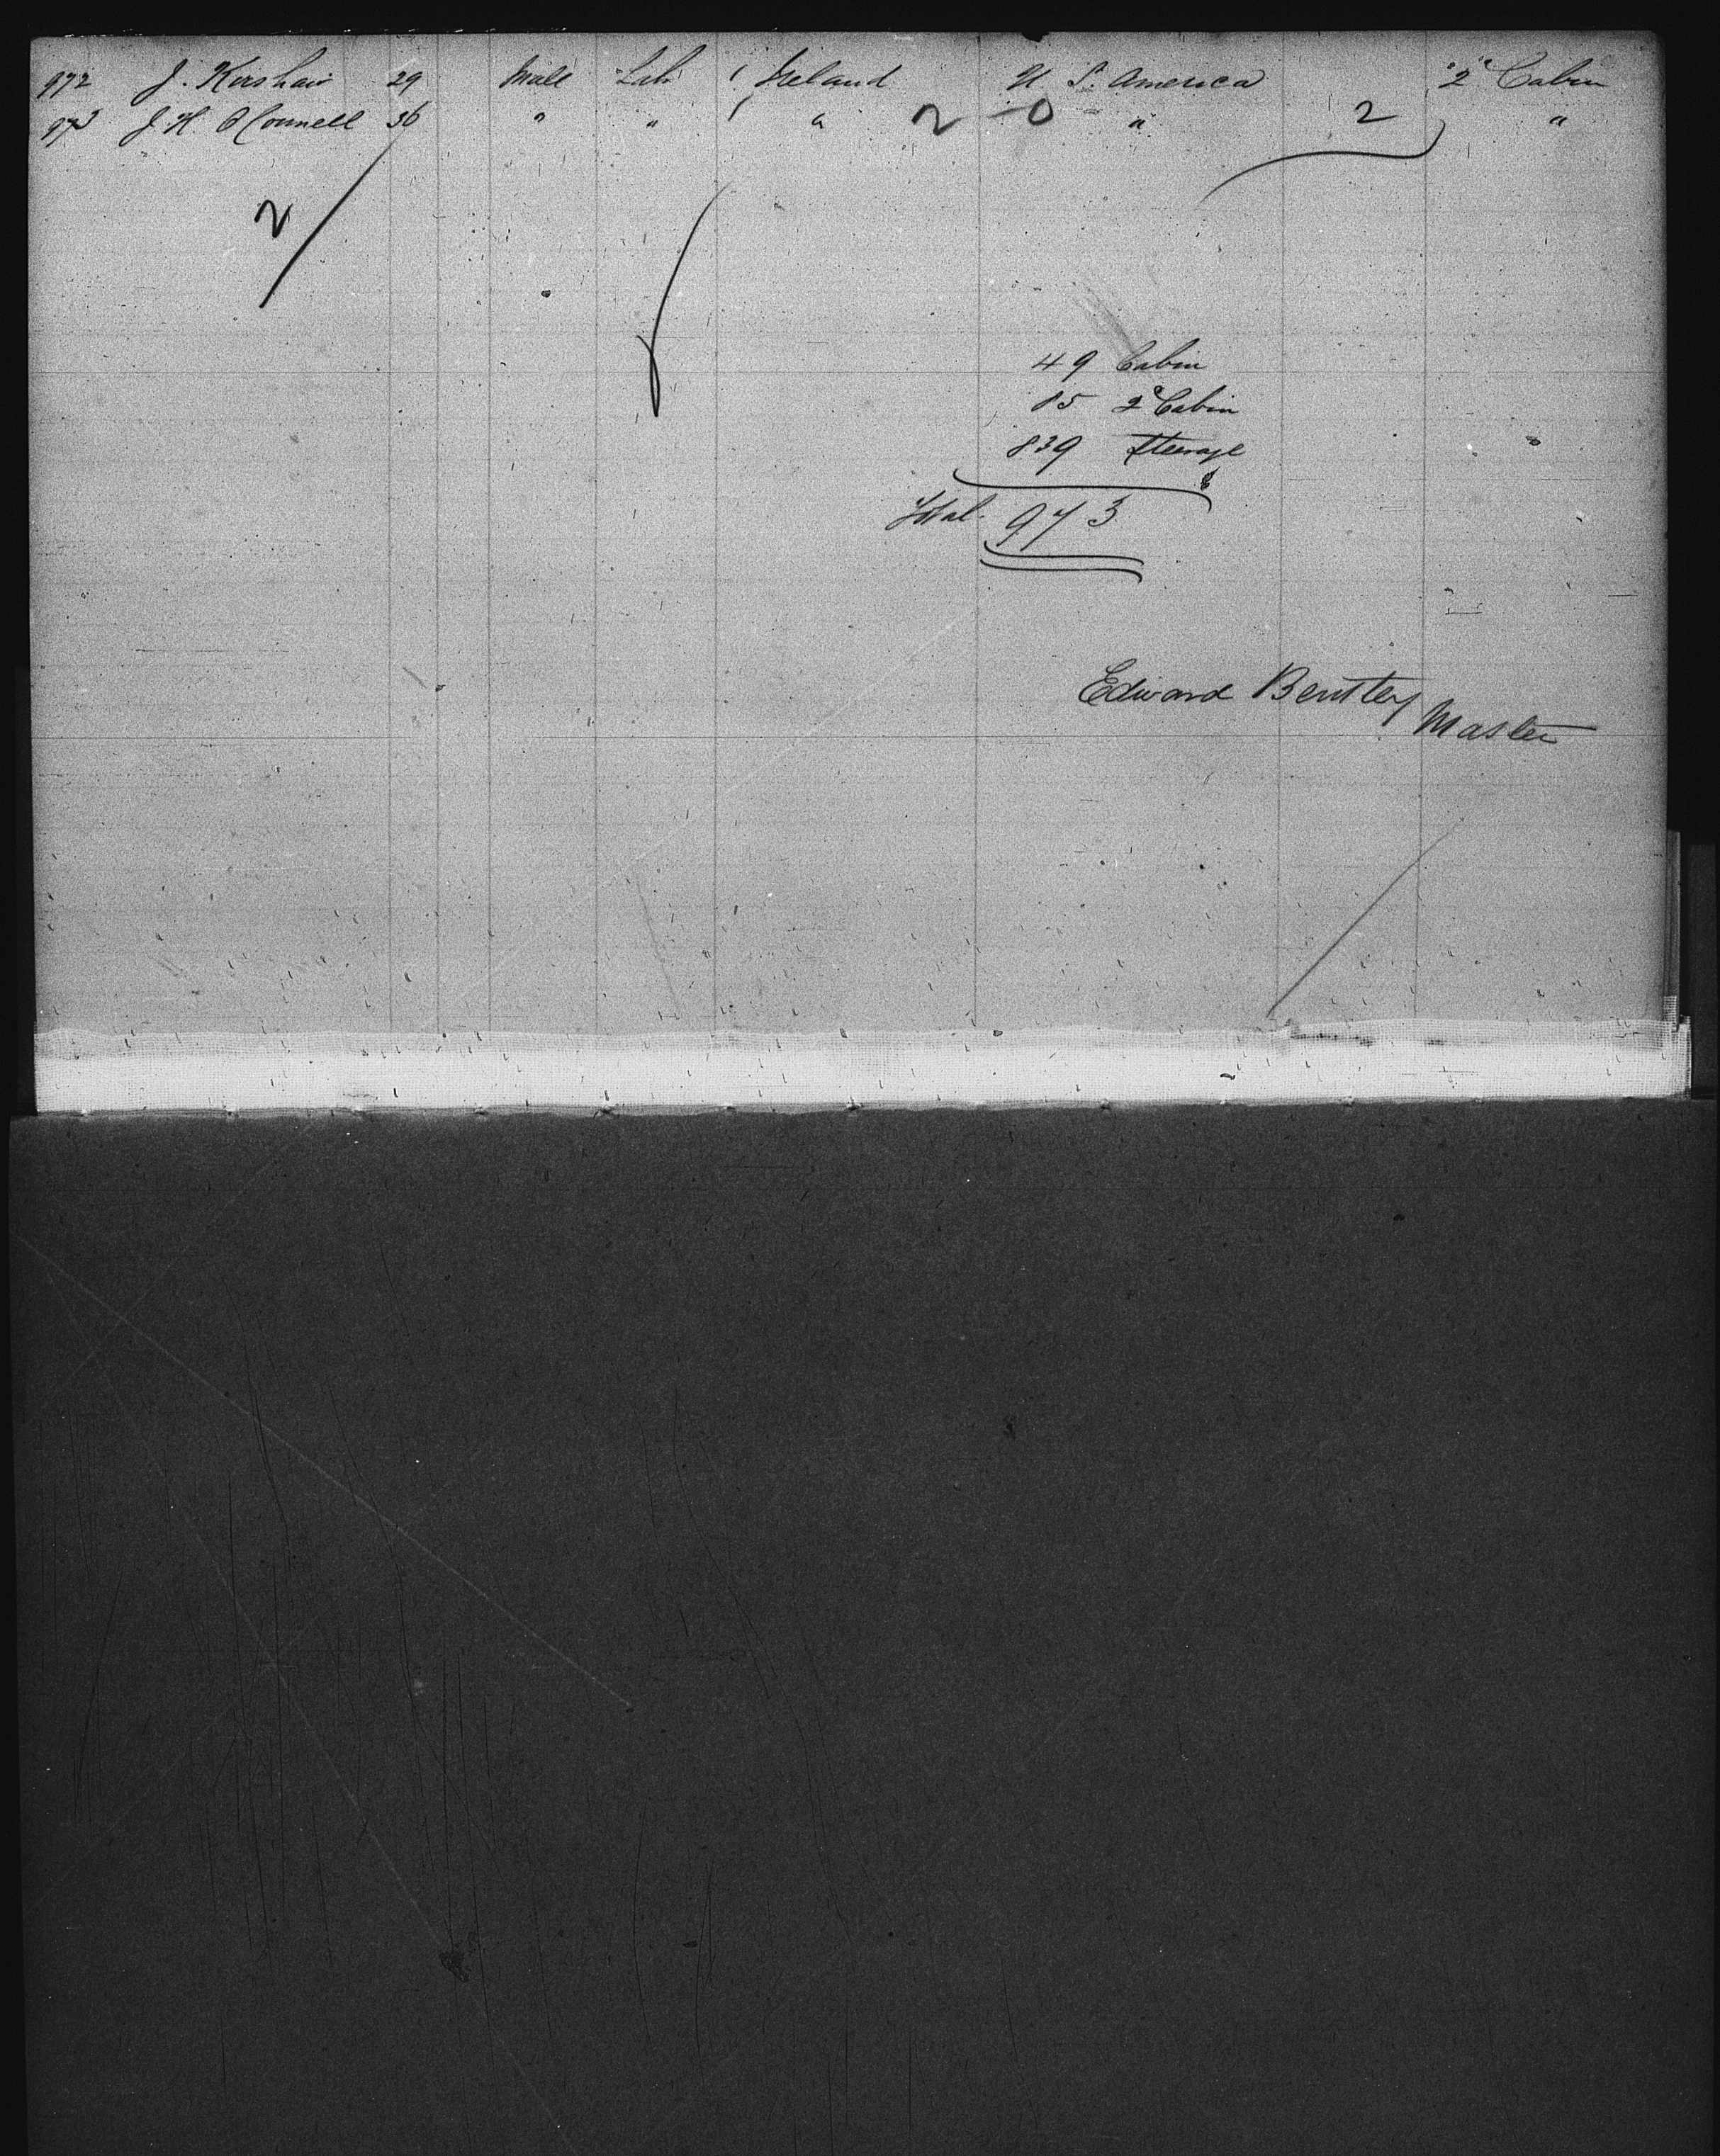 972 J. Kershaw 29 Male Lab. Ireland U. S. America 2d Cabin
973 J. H. O'Connell 36 " " " 2 - 0 " 2 "
2
49 Cabin
85 2d Cabin
839 Steerage
Total 973
Edward Bentley Master